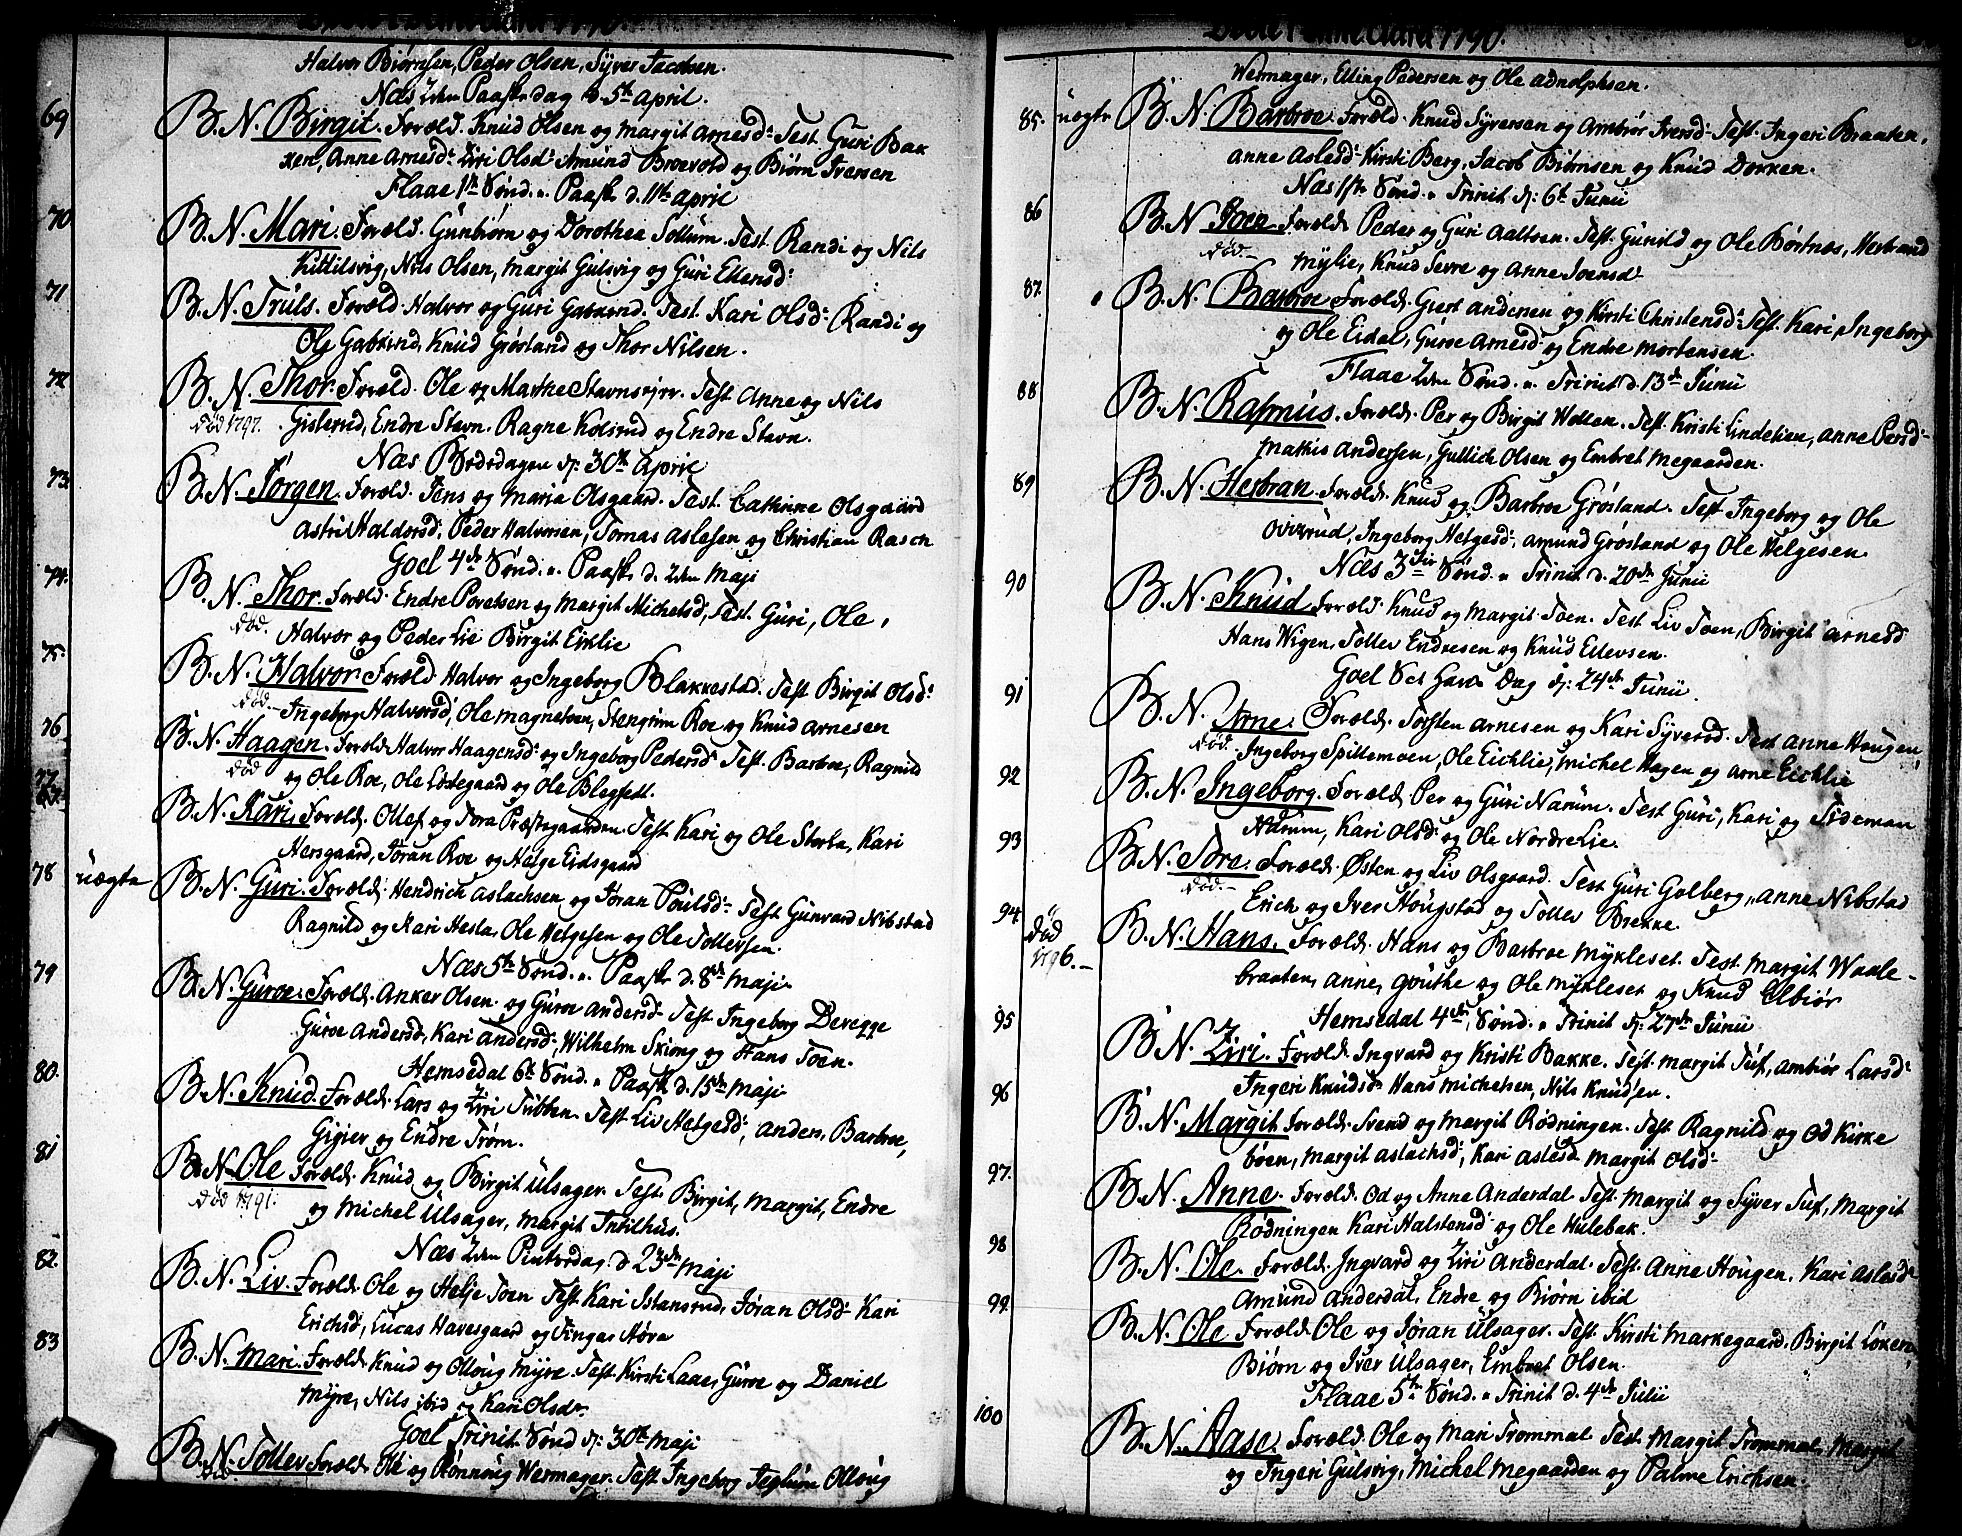 Halvor Biørnsen, Peder Olsen, Syver Jacobsen.
Næs 2den Paaske dag d. 5te April.
69 B. N. Birgit. Foræld. Knud Olsen og Margit Arnesd: Test. Guri Bak
ken, Anne Arnesd: Ziri Olsd: Amund Broevold og Biørn Iversen
Flaae 1te Sønd. Paaske d. 11te April
70 B. N. Mari. Foræld. Gunbiørn og Dorothea Sollum. Test. Randi og Nils
Kittilsvig, Nils Olsen, Margit Gulsvig og Guri Ellensd:
71 B. N. Truls. Foræld. Halvor og Guri Gabesrud. Test. Kari Olsd: Randi og
Ole Gabesrud, Knud Grøsland og Thor Nilsen.
72 B. N. Thor. Foræld. Ole og Marthe Stavns Test Anne og Nils
død 1797. Gislerud, Endre Stavn. Ragne Kolsrud og Endre Stavn.
Næs Bededagen d: 30te April
73 B. N. Jørgen. Foræld. Jens og Maria Olsgaard. Test. Cathrine Olsgaard
Astri Haldorsd, Peder Halvorsen, Tomas Aslesen og Christian Rasch
Goel 4de Sønd. Paaske d. 2den Maji
74. B. N. Thor. Foræld. Endre Povelsen og Margit Michelsd, Test. Guri, Ole,
død. Halvor og Peder Lie Birgit Eiklie
75. B. N. Halvor Foræld Halvor og Ingeborg Blakkestad. Test Birgit Olsd:
død. Ingeborg Halvorsd, Ole Magnetoen, Stengrim Roe og Knud Arnesen
76 B. N. Haagen. Foræld Halvor Haagensd: og Ingeborg Pedersd Test. Barbroe, Ragnild
død og Ole Roe, Ole Løstegaard og Ole Blegsett.
77. B. N. Kari. Foræld. Ollef og Tora Præstegaarden. Test Kari og Ole Storla, Kari
Hersgaard, Jøran Roe og Helge Eidsgaard
78 uægte B. N. Guri. Foræld. Hendrich Aslachsen og Jøran Poulsd: Test Gunvard Nibstad
Ragnild og Kari Hesla, Ole Helgesen og Ole Tollefsen.
Næs 5te Sønd. Paaske d. 8de Maji
79 B. N. Guroe. Foræld. Anker Olsen. og Guroe Andersd. Test Ingeborg Deregge
Guroe Andersd, Kari Andersd, Wilhelm Skiong og Hans Toen.
Hemsedal 6te Sønd. Paaske d. 15de Maji
80. B. N. Knud. Foræld. Lars og Ziri Tubben. Test Liv Helgesd, Anders, Barbroe,
Gigier og Endre Trøm.
81 B. N. Ole Foræld. Knud og Birgit Ulsager. Test. Birgit, Margit, Endre
død 1791. og Michel Ulsager, Margit Intilhus.
Næs 2den Pintsedag. d 23de Maji
82. B. N. Liv. Foræld. Ole og Helje Toen Test Kari Islansrud, Jøran Olsd: Kari
Erichsd, Lucas Havesgaard og Tingas Høva
83 B. N. Mari. Foræld. Knud og Olloug Myre. Test. Kirsti Laae, Guroe og Daniel
Myre, Nils ibid og Kari Olsdr.
Goel Trinit. Sønd d: 30te Maji
B. N. Tollev Foræld. Ole og Rønnoug Wermager. Test Ingeborg Teglum Olloug
død
1790.
Wermager, Elling Pedersen og Ole Adnolphsen.
85. uægte B. N. Barbroe. Foræld. Knud Syversen og Ambiør Iversd. Test. Ingeri Braaten,
Anne Aslesd. Kirsti Berg, Jacob Biørnsen og Knud Dokken.
Næs 1ste Sønd. Trinit d: 6te Junii
86 B. N. Joen Foræld. Peder og Guri Aaltoen. Test. Gunild og Ole Børtnæs, Herbrand
død. Mylie, Knud Sevre og Anne Joensd.
87. B. N. Barbroe Foræld. Giert Andersen og Kirsti Christensd. Test. Kari, Ingeborg
og Ole Eidal, Guroe Arnesd og Endre Mortensen.
Flaae 2den Sønd. Trinit d. 13de Junii
88 B. N. Rasmus. Foræld. Per og Birgit Wollen. Test. Kristi Lindelien, Anne Persd:
Mathis Andersen, Gullich Olsen og Embret Megaarden.
89 B. N. Herbran. Foræld. Knud og Barbroe Grøsland. Test Ingeborg og Ole
Ovizrud, Ingeborg Helgesd, Amund Grøsland og Ole Helgesen.
Næs 3die Sønd. Trinit d. 20de Junii
90 B. N. Knud Foræld. Knud og Margit Toen. Test Liv Toen, Birgit Arnesd
Hans Wigen, Tollev Endresen og Knud Ellevsen.
Goel Sct Hans Dag d: 24de Junii
91 B. N. Arne. Foræld. Torsten Arnesen og Kari Syversd. Test Anne Hougen,
død. Ingeborg Spillemoen, Ole Eichlie, Michel Hagen og Arne Eichlie
92 B. N. Ingeborg. Foræld. Per og Guri Narum. Test Guri, Kari og Tideman
Narum, Kari Olsd: og Ole Nordre Lie.
93 B. N. Tore. Foræld. Østen og Liv Olsgaard. Test Guri Golberg, Anne Nibstad
død. Erich og Iver Houpstad og Tollev Brekke.
94 død 1796. B. N. Hans. Foræld. Hans og Barbroe Mykleset. Test. Margit Waale-
braaten, Anne, Gouthe og Ole Mykleset og Knud Elbiør
Hemsedal 4de Sønd. Trinit d: 27de Junii
95 B. N. Ziri. Foræld. Ingvard og Kristi Bakke. Test. Margit Tuf, Ambiør Larsd
Ingeri Knudsd. Hans Michelsen, Nils Knudsen.
96 B. N. Margit Foræld. Svend og Margit Rødningen. Test. Ragnild og Od Kirke
bøen, Margit Aslachsd, Kari Aslesd. Margit Olsd.
97. B. N. Anne. Foræld. Od og Anne Anderdal. Test. Margit og Syver Tuf, Margit
Rødningen Kari Halstensd. og Ole Hulebak.
98 B. N. Ole. Foræld. Ingvard og Ziri Anderdal. Test. Anne Hougen, Kari Aslesd
Amund Anderdal, Endre og Biørn ibid
99 B. N. Ole Foræld. Ole og Jøran Ulsager. Test. Kirsti Markegaard. Birgit Løken,
Biørn og Iver Ulsager, Embret Olsen.
Flaae 5te Sønd. Trinit d. 4de Julii
100 B. N. Aase. Foræld. Ole og Mari Trommal Test. Margit Trommal, Margit
og Ingeri Gulsvig, Michel Megaarden og Palme Erichsen.